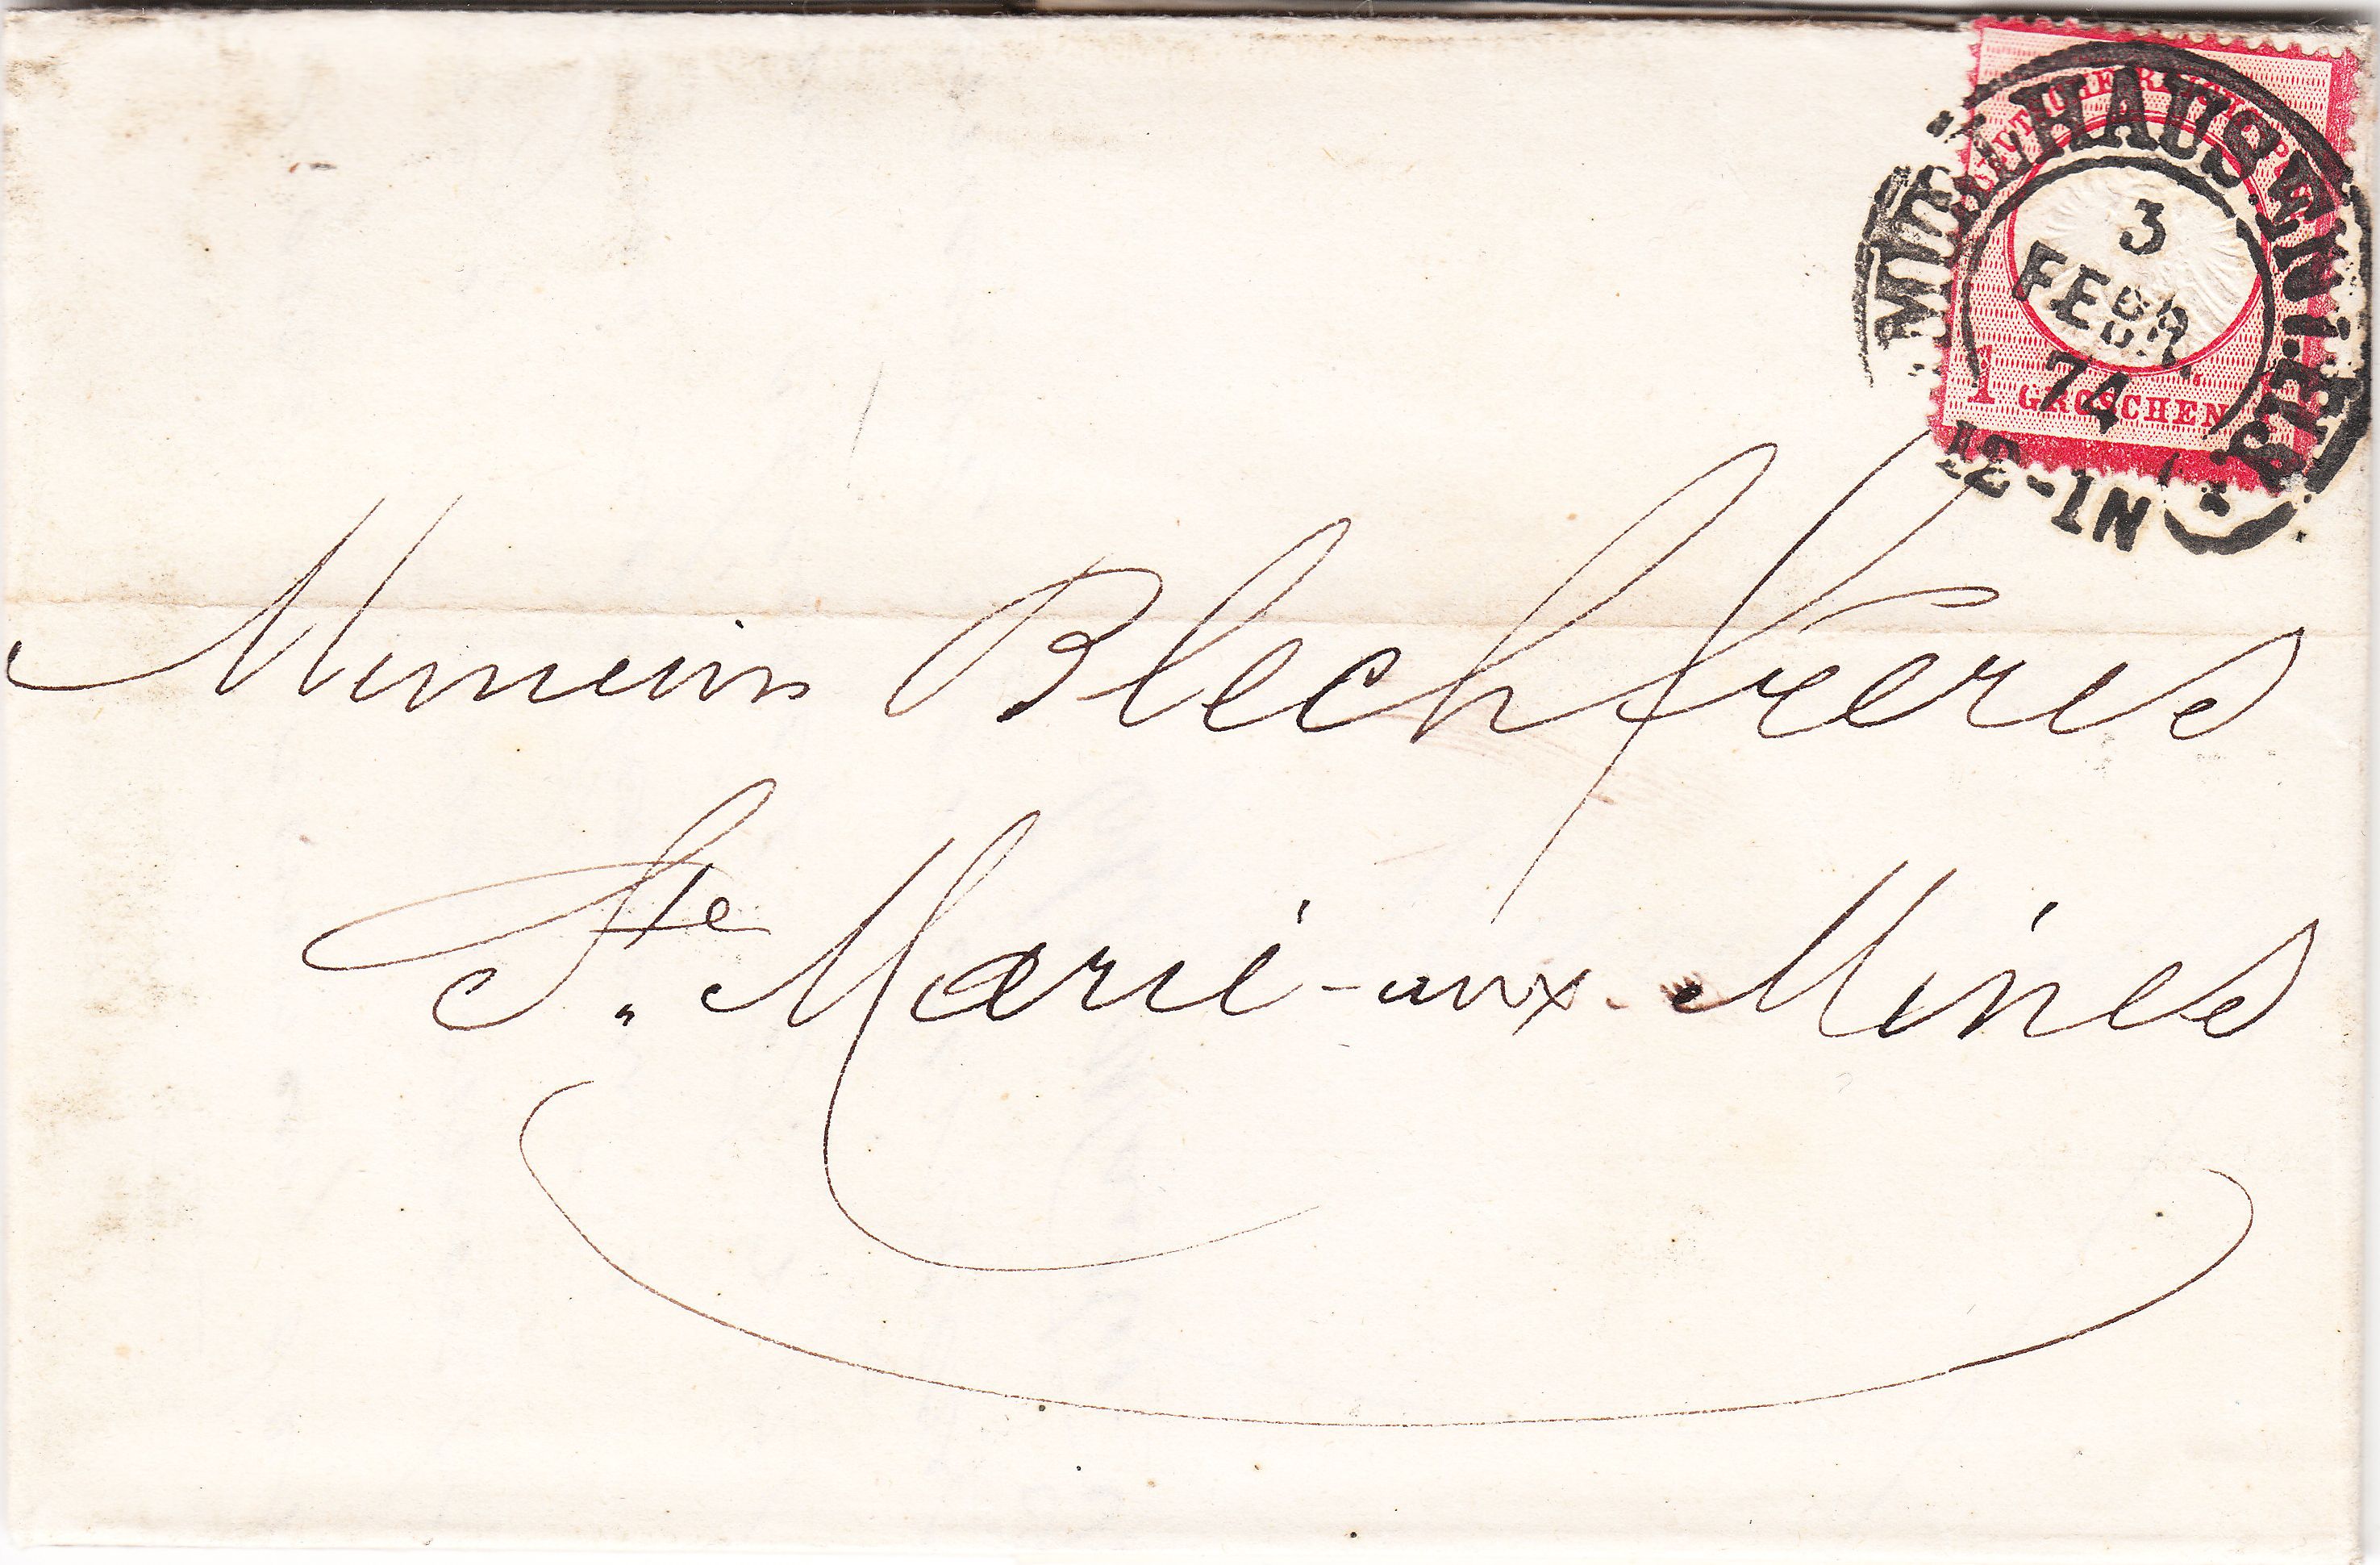 MÜLHAUSEN i. ELS
3
FEBR
74
12-1N
1 GROSCHEN
Messieurs Blech frères
Ste Marie-aux-Mines